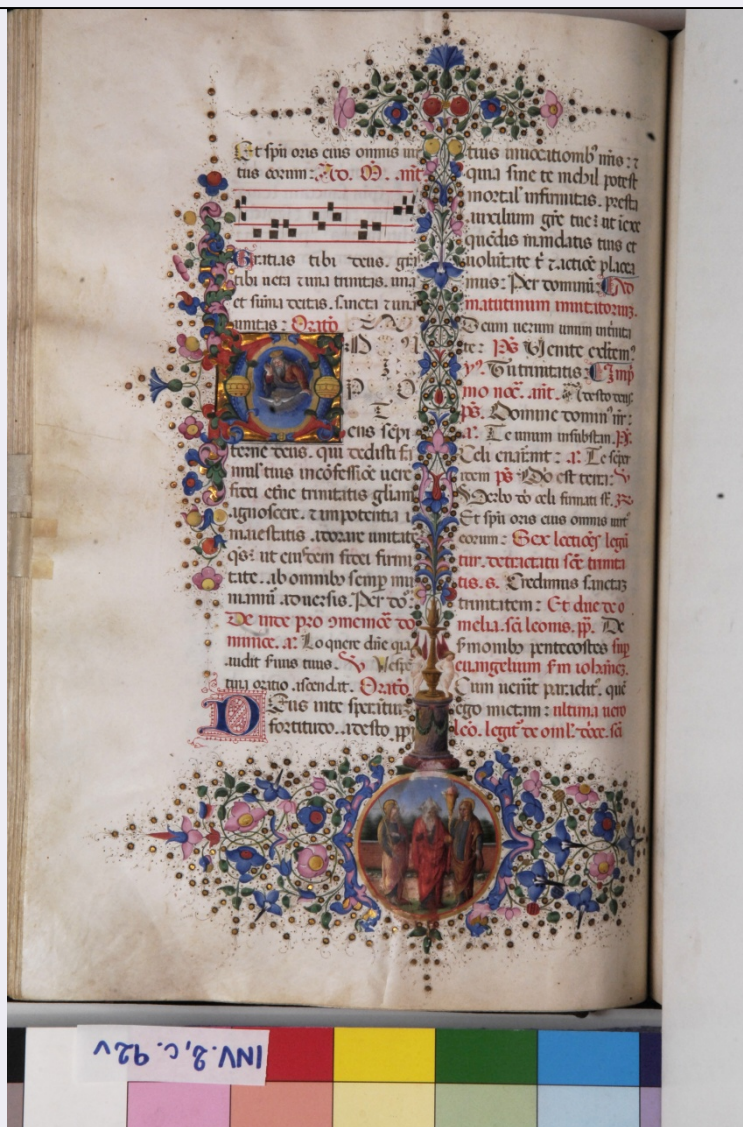 Et spũ oris eius omnis uir
tus eorum:
Gratias tibi deus. grã
tibi uera ⁊ una trinitas. una
et sũma deitas. sancta ⁊ una
unitas: Oratõ
P
P O
T
eus sẽpi
terne deus. qui dedisti fa
mul' tuis in cõfessiõe uere
fidei eterne trinitatis gliam
agnoscere. ⁊ in potentia
maiestatis adorare unitatẽ
qs: ut eiusdem fidei firmi
tate. ab omnibꝰ semp mu
niamur aduersis. Per dõ:
De inde pro
Loquere dñe quia
audit seruus tuus. Vespe
tina oratio ascendat. Oratõ
Deus in te sperãtiũ
fortitudo. adesto pp
tius inuocationibꝰ nr̃is: ⁊
quia sine te nichil potest
mortal' infirmitas. presta
auxilium gr̃e tue: ut ĩ exe
quẽdis mandatis tuis et
uolũtate t̃ ⁊ actiõe placea
mus: Per dominũ: Ad
matutinum inuitatoriuz.
Deum uerum unum in trinita
te: Ps Uenite exultemꝰ
In trinitatis:
mo noc̃. ant. Adesto deus
ps. Domine dominꝰ nr̃:
a. Te unum in substan. Ps.
Celi enarrant: a. Te semper
idem ps Dñi est terra: V
Verbo dñi celi firmati st̃. R
Et spũ oris eius omnis uirt
eorum: Sex lectiões legũ
tur. de tractatu sc̃e trinita
tis. s. Credimus sanctaz
trinitatem: Et due de o
melia. sc̃i leonis. pp. De
sermonibꝰ pentecostes sup
euangelium s̃m iohãnez.
Cum uenit paraclit'. quẽ
ego mictam: ultima uero
leõ. legit' de omĩl. dõce. sc̃i
INV. 2, c. 92v